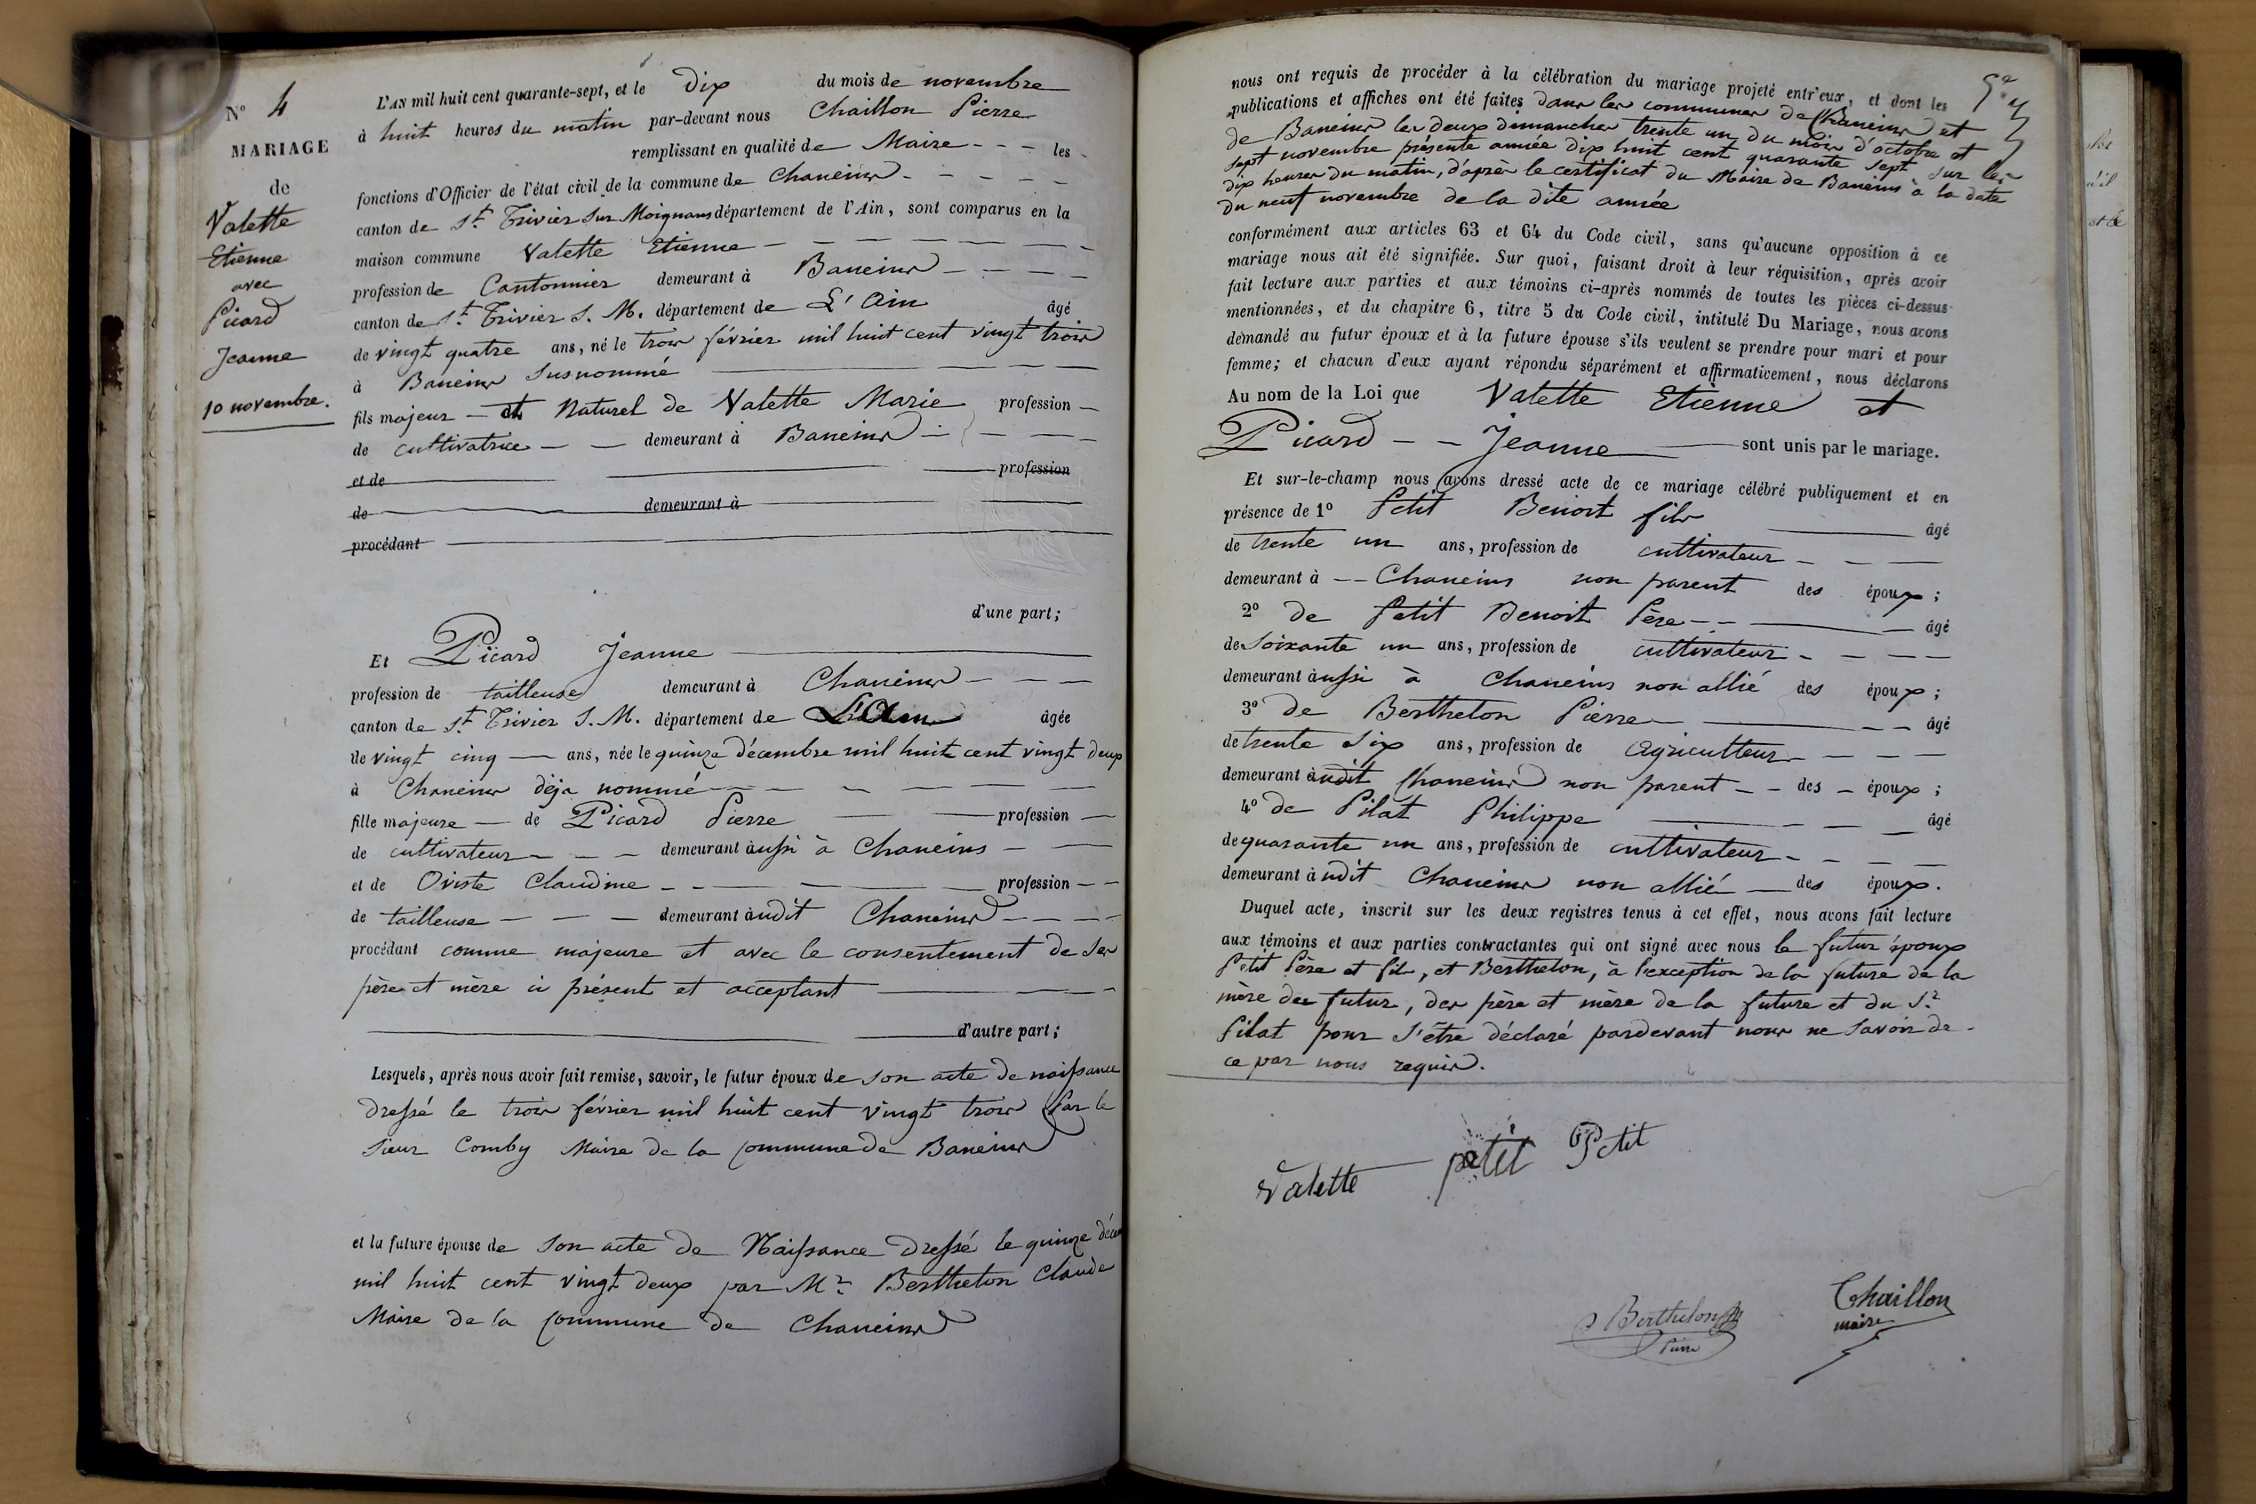 N° 4
MARIAGE
de
Valette
Etienne
avec
Picard
Jeanne
10 novembre.
L'AN mil huit cent quarante-sept, et le dix du mois de novembre
à huit heures du matin par-devant nous Chaillon Pierre
remplissant en qualité de Maire - - - les
fonctions d'Officier de l'état civil de la commune de Chaneins - - - -
canton de St. Trivier sur Moignans département de l'Ain, sont comparus en la
maison commune Valette Etienne - - - - - -
profession de Cantonnier demeurant à Baneins - - - -
canton de St. Trivier S. M. département de L'Ain âgé
de vingt quatre ans, né le trois février mil huit cent vingt trois
à Baneins susnommé
fils majeur - et Naturel de Valette Marie profession -
de cultivatrice - - demeurant à Baneins - - - -
et de profession
de demeurant à
procédant
d'une part;
Et Picard Jeanne
profession de tailleuse demeurant à Chaneins - - -
canton de St. Trivier S. M. département de L'Ain âgée
de vingt cinq - ans, née le quinze décembre mil huit cent vingt deux
à Chaneins déja nommé - - - - - -
fille majeure - de Picard Pierre - profession -
de cultivateur - - - demeurant aussi à Chaneins - -
et de Oriste Claudine - - - - profession - -
de tailleuse - - - demeurant audit Chaneins - - - -
procédant comme majeure et avec le consentement de ses
père et mère ci présent et acceptant
d'autre part;
Lesquels, après nous avoir fait remise, savoir, le futur époux de son acte de naissance
dressé le trois février mil huit cent vingt trois par le
sieur Comby Maire de la commune de Baneins
et la future épouse de son acte de Naissance dressé le quinze
mil huit cent vingt deux par Mr Berthelon Claude
Maire de la commune de Chaneins
nous ont requis de procéder à la célébration du mariage projeté entr'eux, et dont les
publications et affiches ont été faites dans les communes de Chaneins et
de Baneins les deux dimanches trente un du mois d'octobre et
sept novembre présente année dix huit cent quarante sept sur les
dix heures du matin, d'après le certificat du Maire de Baneins à la date
du neuf novembre de la dite année
conformément aux articles 63 et 64 du Code civil, sans qu'aucune opposition à ce
mariage nous ait été signifiée. Sur quoi, faisant droit à leur réquisition, après avoir
fait lecture aux parties et aux témoins ci-après nommés de toutes les pièces ci-dessus
mentionnées, et du chapitre 6, titre 5 du Code civil, intitulé Du Mariage, nous avons
demandé au futur époux et à la future épouse s'ils veulent se prendre pour mari et pour
femme; et chacun d'eux ayant répondu séparément et affirmativement, nous déclarons
Au nom de la Loi que Valette Etienne et
Picard - - Jeanne sont unis par le mariage.
Et sur-le-champ nous avons dressé acte de ce mariage célébré publiquement et en
présence de 1° Petit Benoit fils âgé
de trente un ans, profession de cultivateur - - -
demeurant à - - Chaneins non parent des époux;
2° de Petit Benoit Père - - âgé
de soixante un ans, profession de cultivateur - - - -
demeurant aussi à Chaneins non allié des époux;
3° de Berthelon Pierre - - - âgé
de trente six ans, profession de agriculteur - - - -
demeurant audit Chaneins non parent - - des - époux;
4° de Pilat Philippe - - - âgé
de quarante un ans, profession de cultivateur - - - -
demeurant à udit Chaneins non allié - des époux.
Duquel acte, inscrit sur les deux registres tenus à cet effet, nous avons fait lecture
aux témoins et aux parties contractantes qui ont signé avec nous le futur époux
Petit Père et fils, et Berthelon, à l'exception de la future de la
mère du futur, des père et mère de la future et du Sr
Pilat pour s'être déclaré pardevant nous ne savoir de
ce par nous requis.
Valette petit Petit
Berthelon
Pierre
Chaillon
maire